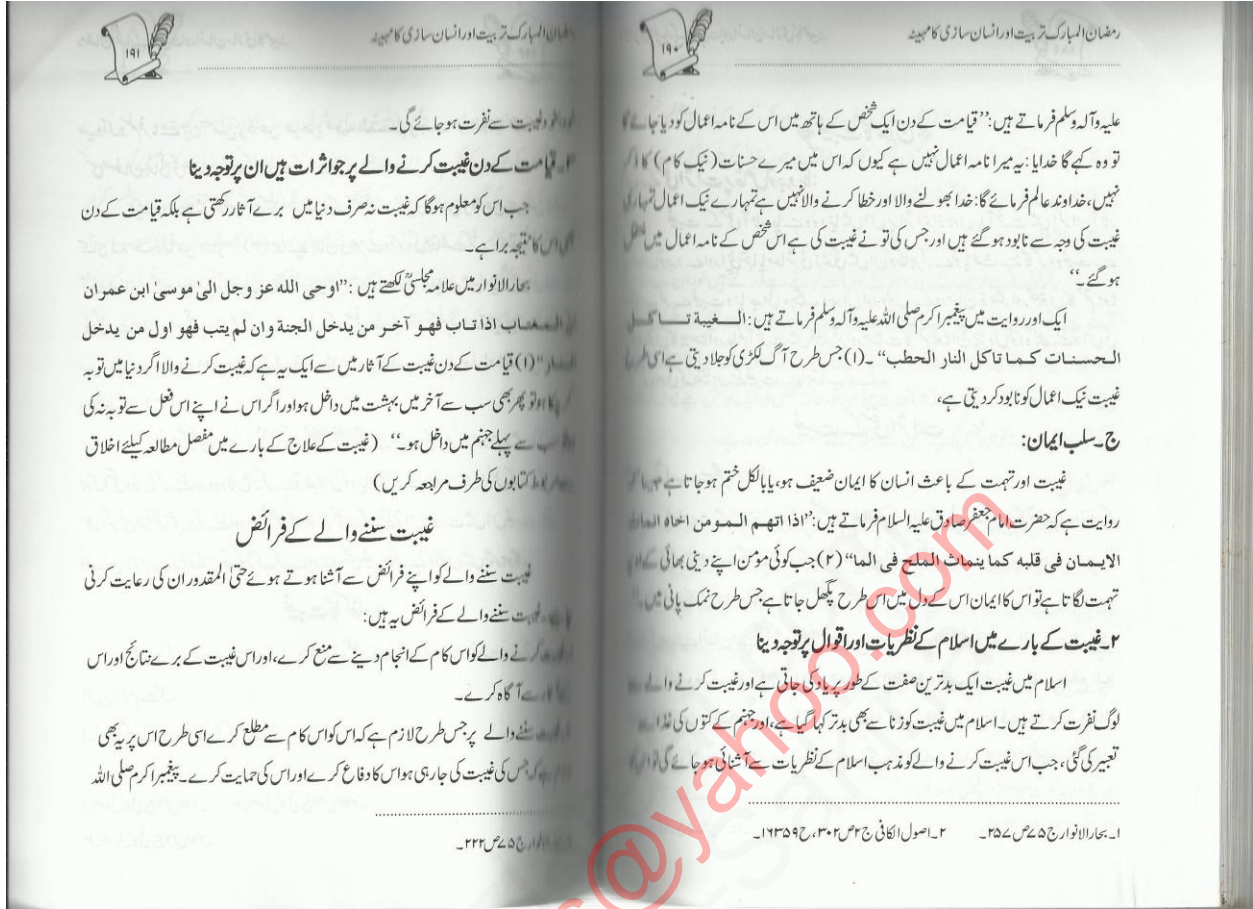 رمضان المبارک تربیت اور انسان سازی کا مہینہ
۱۹۰
علیہ وآلہ وسلم فرماتے ہیں:’’قیامت کے دن ایک شخص کے ہاتھ میں اس کے نامہ اعمال کو دیا جائے گا
تو وہ کہے گا خدایا: یہ میرا نامہ اعمال نہیں ہے کیوں کہ اس میں میرے حسنات (نیک کام) کا ذکر
نہیں، خداوند عالم فرمائے گا: خدا بھولنے والا اور خطا کرنے والا نہیں ہے تمہارے نیک اعمال تمہاری
غیبت کی وجہ سے نابود ہو گئے ہیں اور جس کی تو نے غیبت کی ہے اس شخص کے نامہ اعمال میں منتقل
ہو گئے۔‘‘
ایک اور روایت میں پیغمبر اکرم صلی اللہ علیہ وآلہ وسلم فرماتے ہیں: الـغيبة تـاكـل
الـحسنـات كـمـا تاكل النار الحطب‘‘ ۔(۱) جس طرح آگ لکڑی کو جلا دیتی ہے اسی طرح
غیبت نیک اعمال کو نابود کر دیتی ہے،
ج۔سلب ایمان:
غیبت اور تہمت کے باعث انسان کا ایمان ضعیف ہو، یا بالکل ختم ہو جاتا ہے
روایت ہے کہ حضرت امام جعفر صادق علیہ السلام فرماتے ہیں:’’اذا اتهم الـمـومن اخاه انماث
الايـمـان فى قلبه كما ينماث الملح فى الما‘‘ (۲) جب کوئی مؤمن اپنے دینی بھائی کے اوپر
تہمت لگاتا ہے تو اس کا ایمان اس کے دل میں اس طرح پگھل جاتا ہے جس طرح نمک پانی میں۔‘‘
۲۔غیبت کے بارے میں اسلام کے نظریات اور اقوال پر توجہ دینا
اسلام میں غیبت ایک بدترین صفت کے طور پر یاد کی جاتی ہے اور غیبت کرنے والے سے
لوگ نفرت کرتے ہیں۔اسلام میں غیبت کو زنا سے بھی بدتر کہا گیا ہے، اور جہنم کے کتوں کی غذا سے
تعبیر کی گئی، جب اس غیبت کرنے والے کو مذہب اسلام کے نظریات سے آشنائی ہو جائے گی تو
۱۔ بحار الانوار ج ۷۵ ص ۲۵۷۔ ۲۔اصول الکافی ج ۲ ص ۳۰۲، ح ۱۶۳۵۹۔
رمضان المبارک تربیت اور انسان سازی کا مہینہ
۱۹۱
خود بخود غیبت سے نفرت ہو جائے گی۔
قیامت کے دن غیبت کرنے والے پر جو اثرات ہیں ان پر توجہ دینا
جب اس کو معلوم ہوگا کہ غیبت نہ صرف دنیا میں برے آثار رکھتی ہے بلکہ قیامت کے دن
بھی اس کا نتیجہ برا ہے۔
بحار الانوار میں علامہ مجلسیؒ لکھتے ہیں :’’اوحى الله عز وجل الىٰ موسىٰ ابن عمران
ان الـمـغتـاب اذا تـاب فهـو آخـر من يدخل الجنة وان لم يتب فهو اول من يدخل
النـار‘‘(۱) قیامت کے دن غیبت کے آثار میں سے ایک یہ ہے کہ غیبت کرنے والا اگر دنیا میں توبہ
کر چکا ہو تو پھر بھی سب سے آخر میں بہشت میں داخل ہو اور اگر اس نے اپنے اس فعل سے توبہ نہ کی
سب سے پہلے جہنم میں داخل ہو۔‘‘ (غیبت کے علاج کے بارے میں مفصل مطالعہ کیلئے اخلاق
مربوط کتابوں کی طرف مراجعہ کریں)
غیبت سننے والے کے فرائض
غیبت سننے والے کو اپنے فرائض سے آشنا ہوتے ہوئے حتیٰ المقدور ان کی رعایت کرنی
غیبت سننے والے کے فرائض یہ ہیں:
غیبت کرنے والے کو اس کام کے انجام دینے سے منع کرے، اور اس غیبت کے برے نتائج اور اس
سے آگاہ کرے۔
غیبت سننے والے پر جس طرح لازم ہے کہ اس کو اس کام سے مطلع کرے اسی طرح اس پر یہ بھی
لازم ہے کہ جس کی غیبت کی جا رہی ہو اس کا دفاع کرے اور اس کی حمایت کرے۔ پیغمبر اکرم صلی اللہ
بحار الانوار ج ۷۵ ص ۲۲۲۔
s@yahoo.com